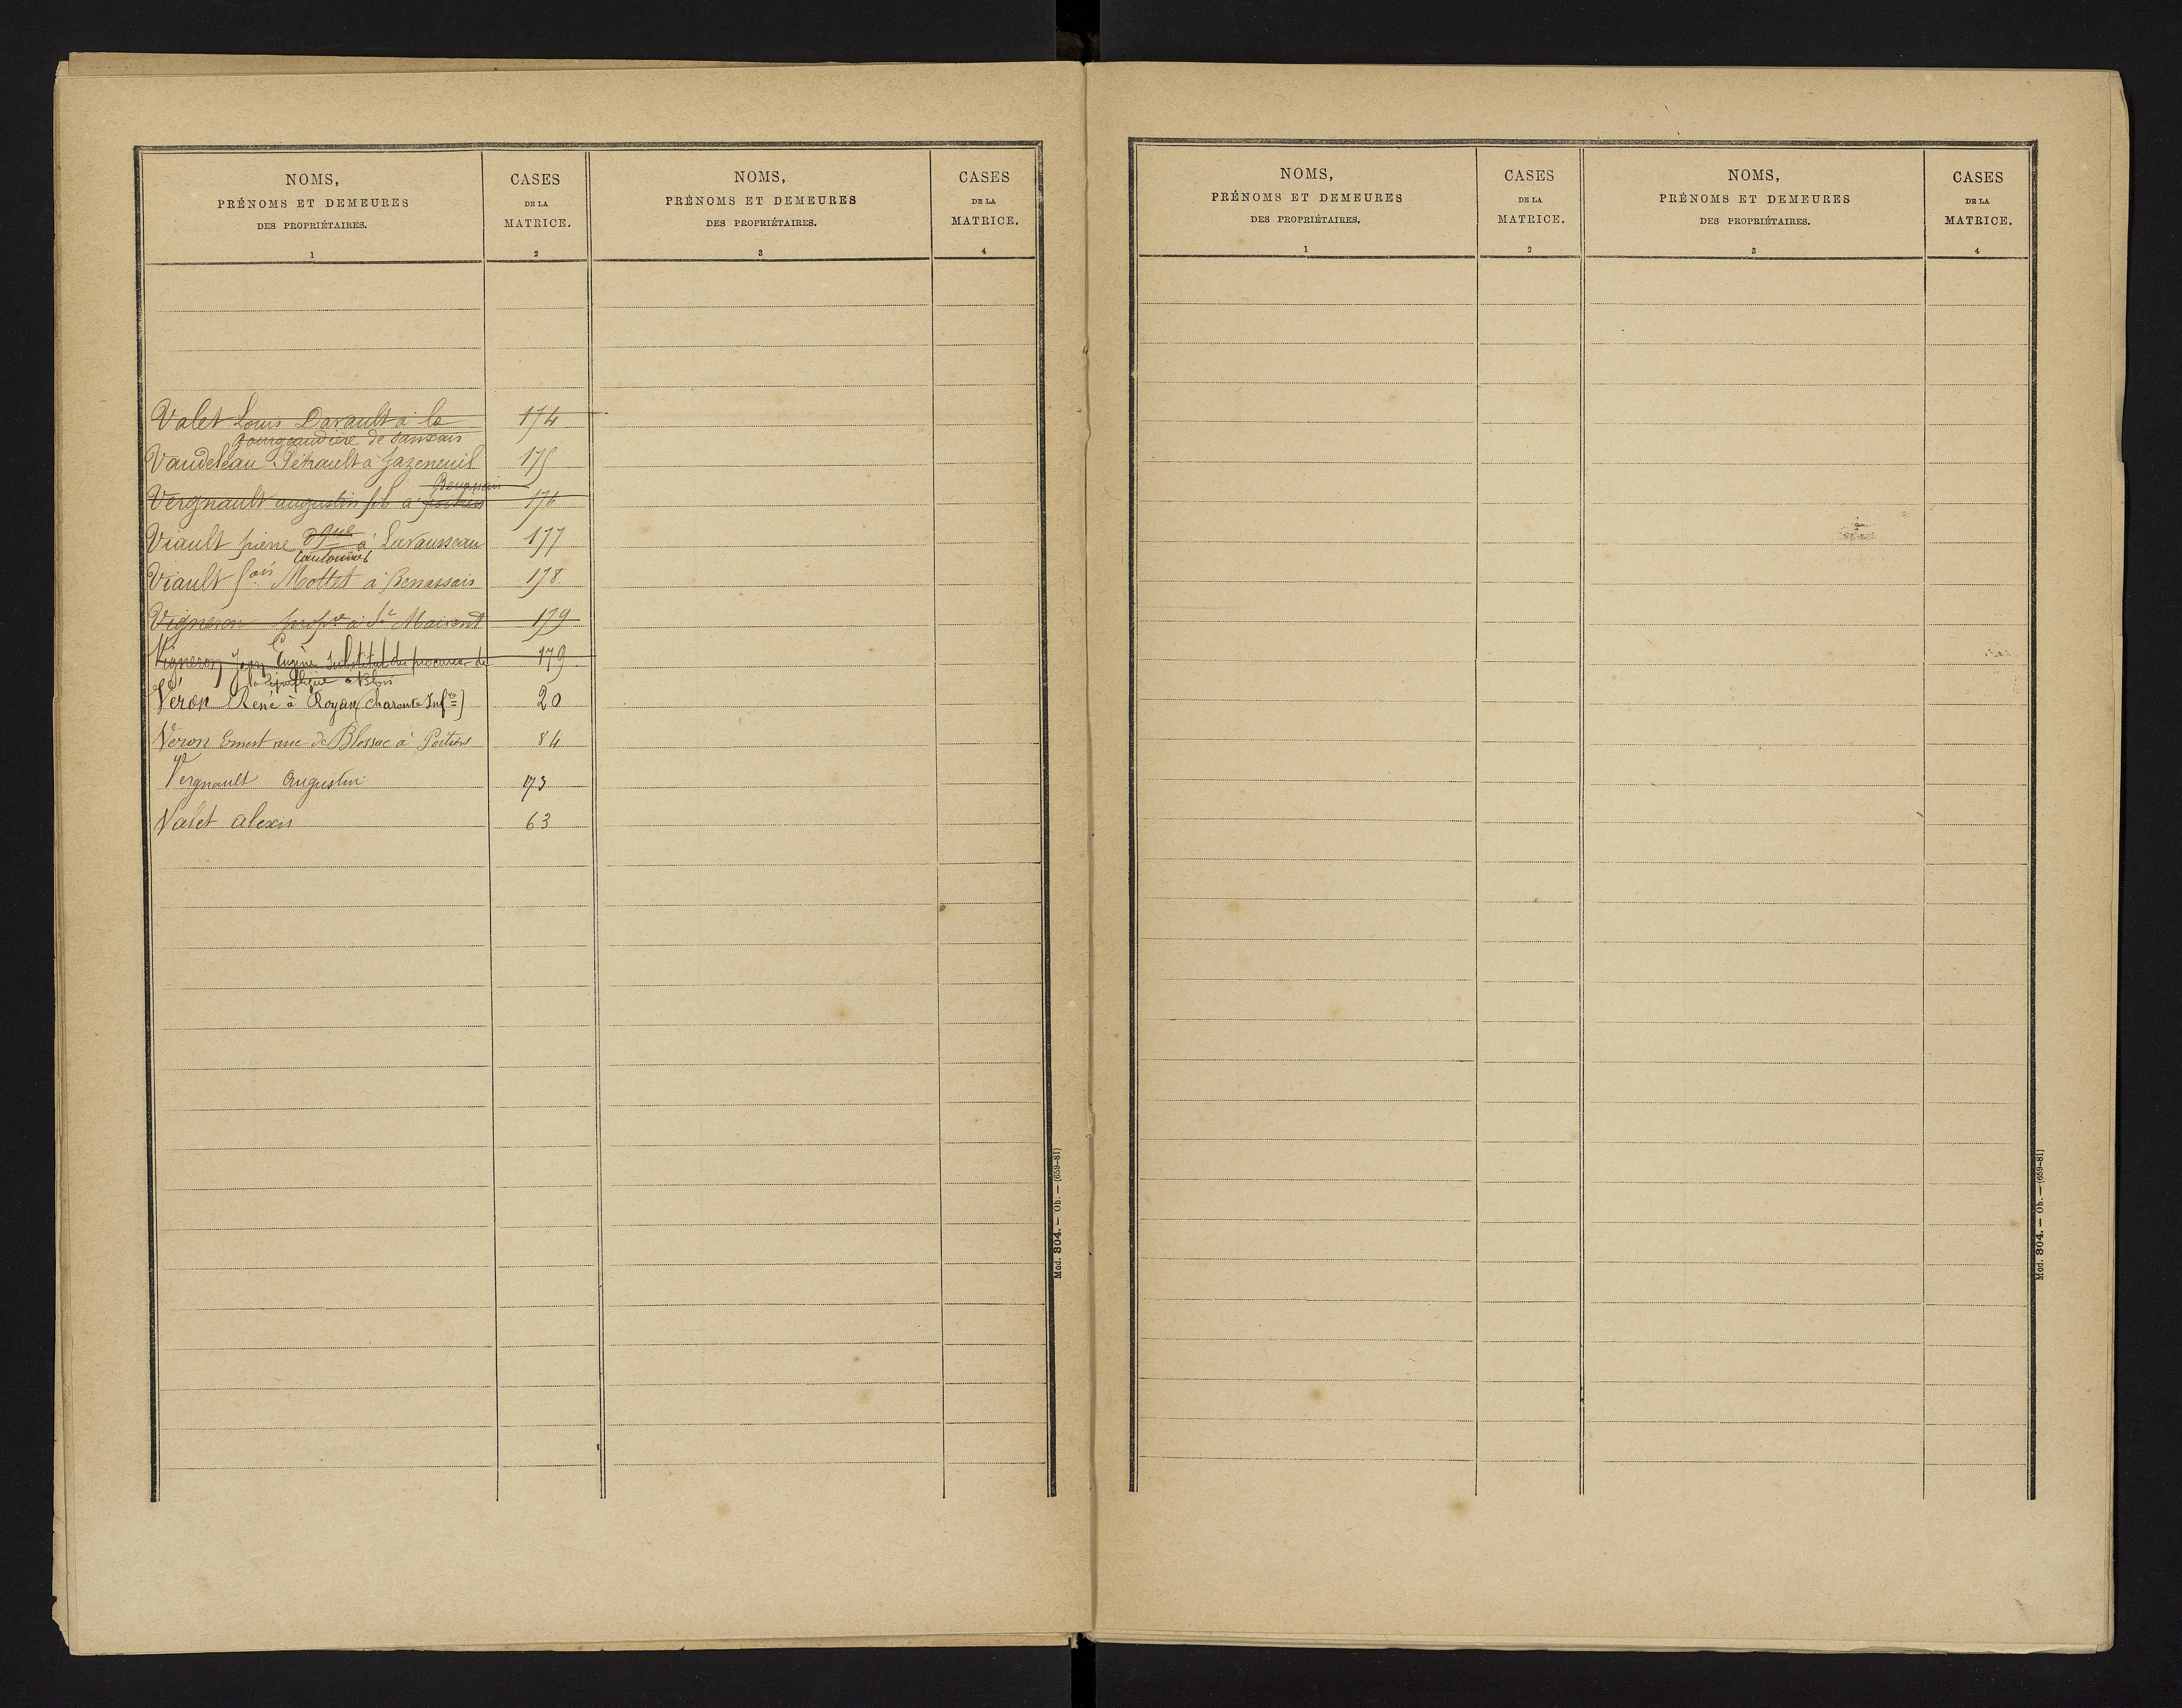 NOMS,
PRÉNOMS ET DEMEURES
DES PROPRIÉTAIRES.
1
CASES
DE LA
MATRICE.
2
NOMS,
PRÉNOMS ET DEMEURES
DES PROPRIÉTAIRES.
3
CASES
DE LA
MATRICE.
4
Valet Louis Davault à la 174
de Sanxais
Vaudeleau Pétrault à Jazeneuil 175
Benassais
Vergnault augustin fils à 176
Viault pierre à Lavausseau 177
Cantonnier
Viault fois Mottet à Benassais 178
Vigneron propre à St Maixent 179
Vigneron Jean Eugène Substitut du procureur de 179
la République à Blois
Véron René à Royan (Charente Infre) 20
Veron Ernest rue de Blossac à Poitiers 84
Vergnault Augustin 173
Valet alexis 63
Mod. 304. — Ob. — (659-81)
NOMS,
PRÉNOMS ET DEMEURES
DES PROPRIÉTAIRES.
1
CASES
DE LA
MATRICE.
2
NOMS,
PRÉNOMS ET DEMEURES
DES PROPRIÉTAIRES.
3
CASES
DE LA
MATRICE.
4
Mod. 304. — Ob. — (659-81)